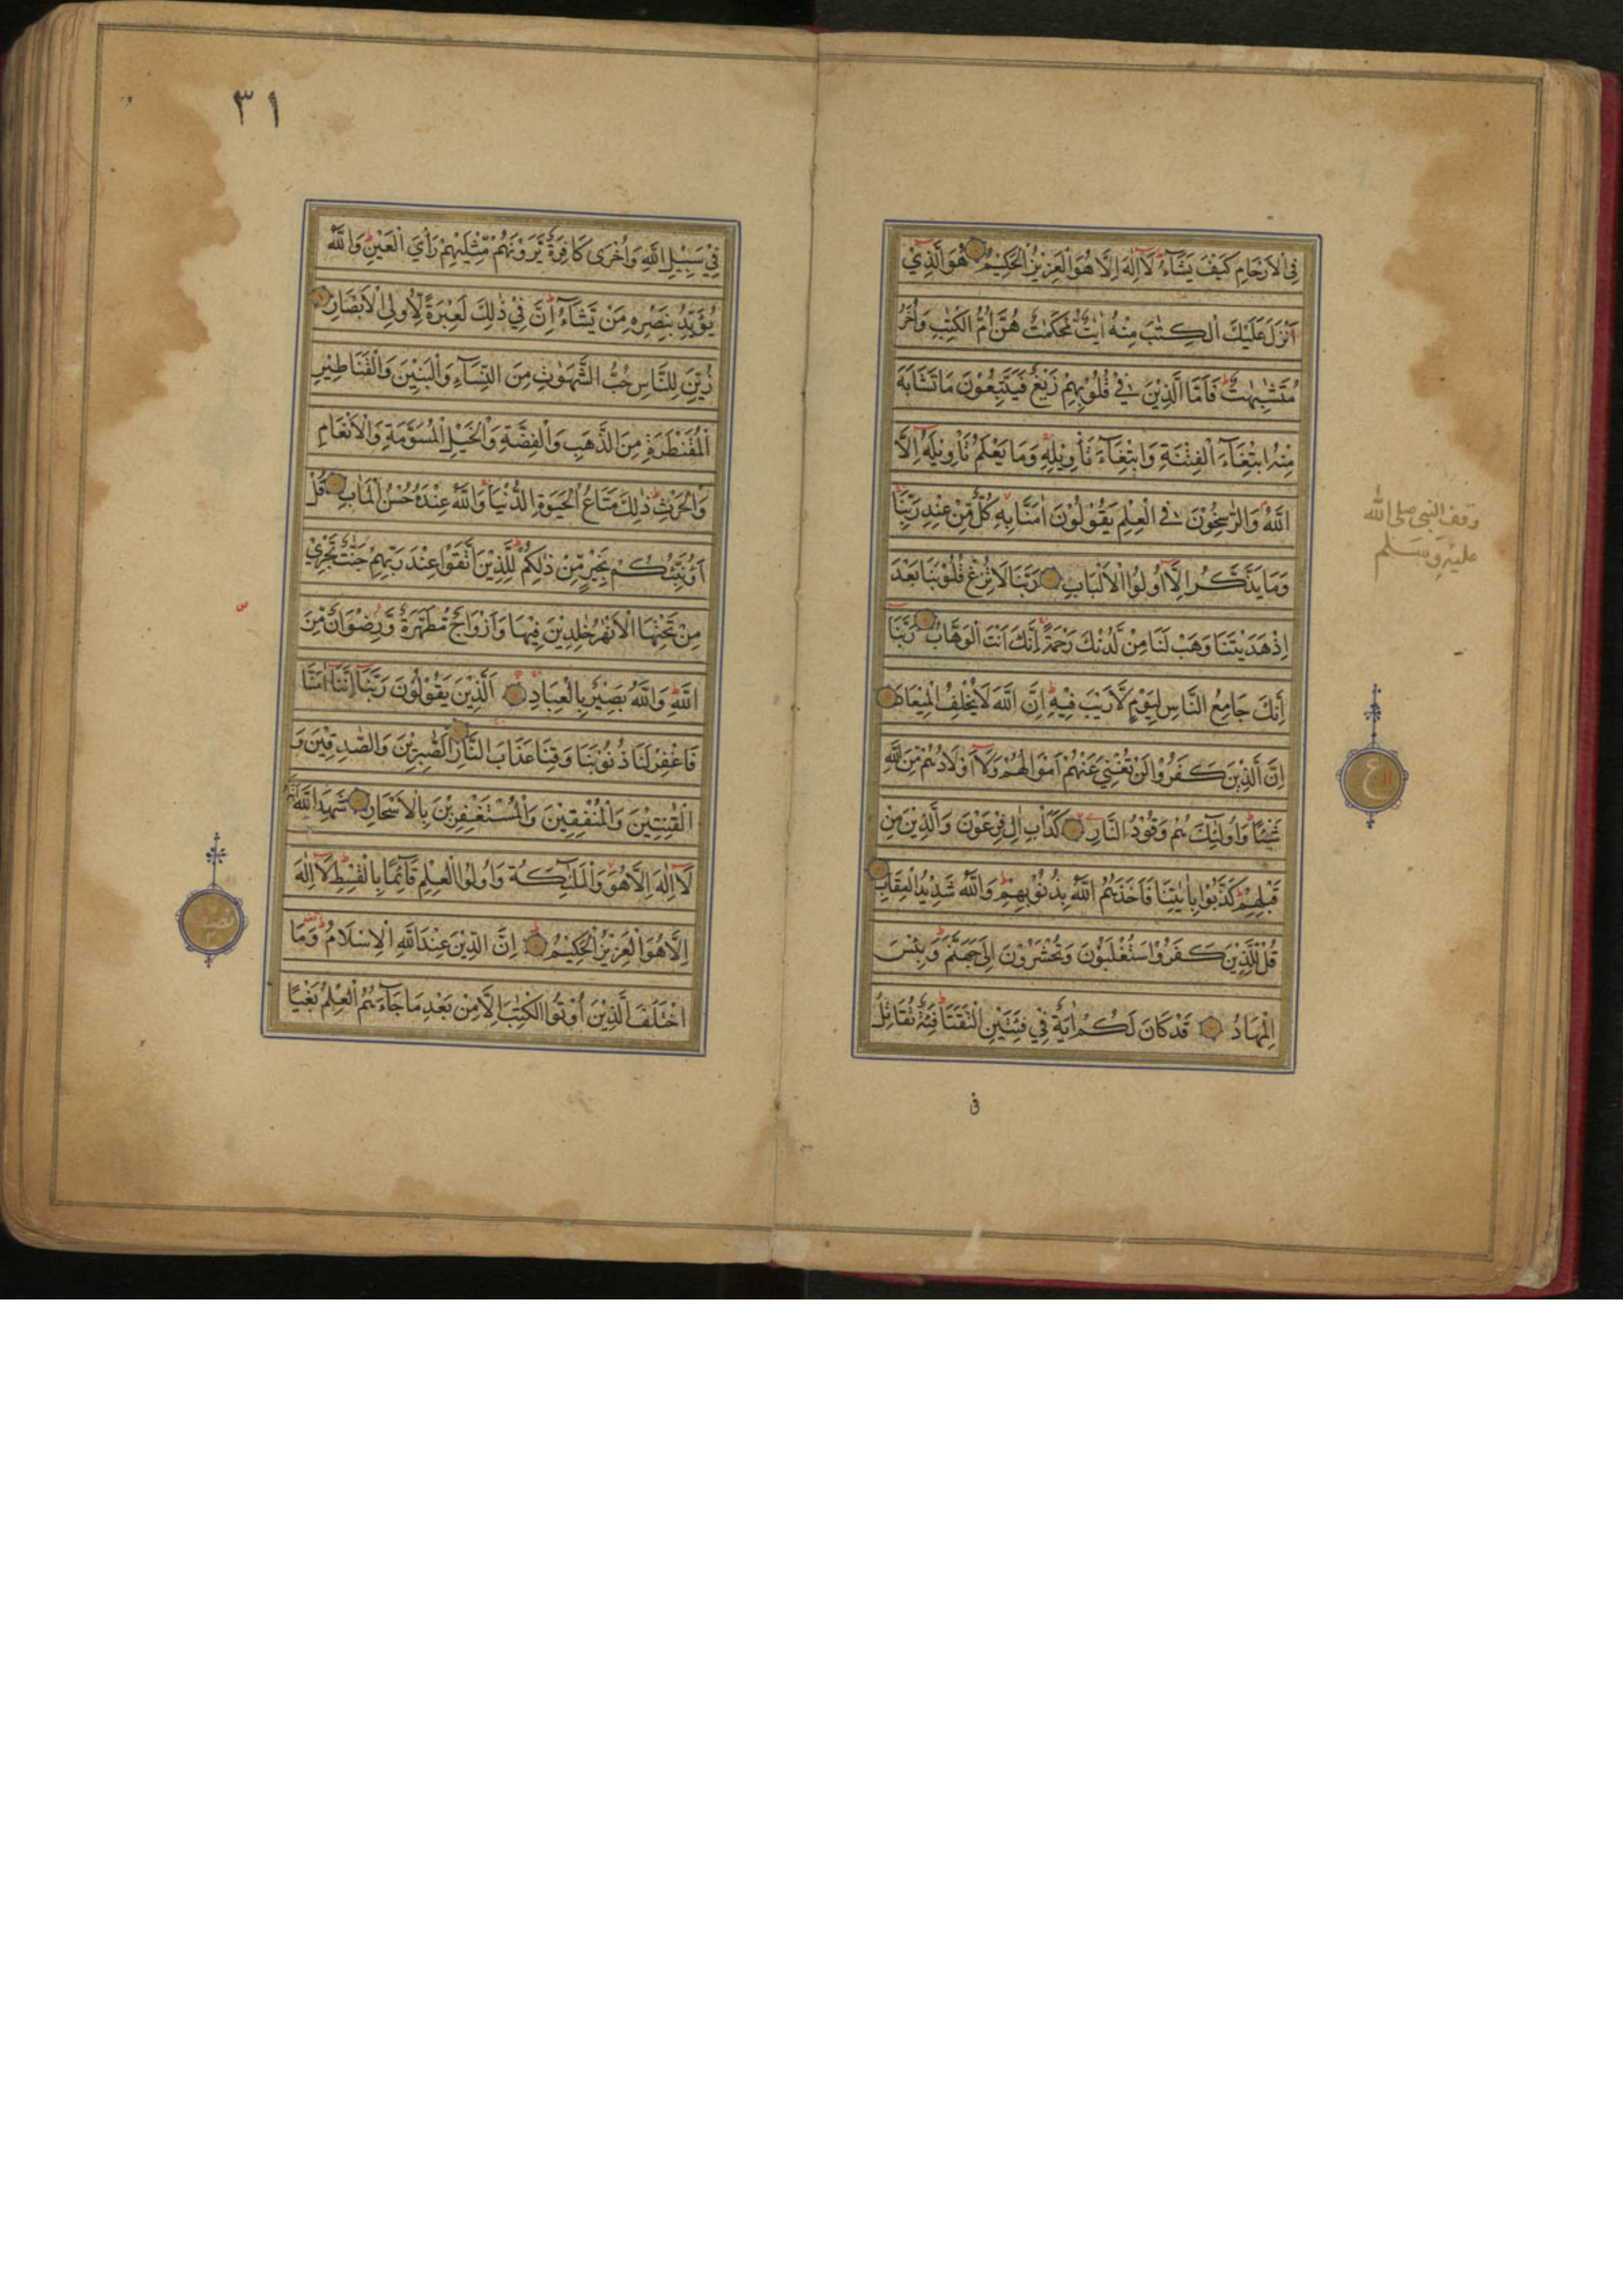 فِي الْاَرْحَامِ كَيْفَ يَشَآءُ ؕ لَآ اِلٰهَ اِلَّا هُوَ الْعَزِيْزُ الْحَكِيْمُ هُوَ الَّذِيْٓ
اَنْزَلَ عَلَيْكَ الْكِتٰبَ مِنْهُ اٰيٰتٌ مُّحْكَمٰتٌ هُنَّ اُمُّ الْكِتٰبِ وَاُخَرُ
مُتَشٰبِهٰتٌ ؕ فَاَمَّا الَّذِيْنَ فِيْ قُلُوْبِهِمْ زَيْغٌ فَيَتَّبِعُوْنَ مَا تَشَابَهَ
مِنْهُ ابْتِغَآءَ الْفِتْنَةِ وَابْتِغَآءَ تَأْوِيْلِهٖ وَمَا يَعْلَمُ تَأْوِيْلَهٗٓ اِلَّا
اللّٰهُ وَالرّٰسِخُوْنَ فِي الْعِلْمِ يَقُوْلُوْنَ اٰمَنَّا بِهٖ كُلٌّ مِّنْ عِنْدِ رَبِّنَا
وَمَا يَذَّكَّرُ اِلَّآ اُولُوا الْاَلْبَابِ رَبَّنَا لَا تُزِغْ قُلُوْبَنَا بَعْدَ
اِذْ هَدَيْتَنَا وَهَبْ لَنَا مِنْ لَّدُنْكَ رَحْمَةً اِنَّكَ اَنْتَ الْوَهَّابُ رَبَّنَآ
اِنَّكَ جَامِعُ النَّاسِ لِيَوْمٍ لَّا رَيْبَ فِيْهِ ؕ اِنَّ اللّٰهَ لَا يُخْلِفُ الْمِيْعَادَ
اِنَّ الَّذِيْنَ كَفَرُوْا لَنْ تُغْنِيَ عَنْهُمْ اَمْوَالُهُمْ وَلَآ اَوْلَادُهُمْ مِّنَ اللّٰهِ
شَيْئًا ؕ وَاُولٰٓئِكَ هُمْ وَقُوْدُ النَّارِ كَدَأْبِ اٰلِ فِرْعَوْنَ وَالَّذِيْنَ مِنْ
قَبْلِهِمْ ؕ كَذَّبُوْا بِاٰيٰتِنَا فَاَخَذَهُمُ اللّٰهُ بِذُنُوْبِهِمْ ؕ وَاللّٰهُ شَدِيْدُ الْعِقَابِ
قُلْ لِّلَّذِيْنَ كَفَرُوْا سَتُغْلَبُوْنَ وَتُحْشَرُوْنَ اِلٰى جَهَنَّمَ ؕ وَبِئْسَ
الْمِهَادُ قَدْ كَانَ لَكُمْ اٰيَةٌ فِيْ فِئَتَيْنِ الْتَقَتَا ؕ فِئَةٌ تُقَاتِلُ
فى
وقف النبى صلى الله
عليه وسلم
ع
٣١
فِيْ سَبِيْلِ اللّٰهِ وَاُخْرٰى كَافِرَةٌ يَّرَوْنَهُمْ مِّثْلَيْهِمْ رَأْيَ الْعَيْنِ ؕ وَاللّٰهُ
يُؤَيِّدُ بِنَصْرِهٖ مَنْ يَّشَآءُ ؕ اِنَّ فِيْ ذٰلِكَ لَعِبْرَةً لِّاُولِي الْاَبْصَارِ
زُيِّنَ لِلنَّاسِ حُبُّ الشَّهَوٰتِ مِنَ النِّسَآءِ وَالْبَنِيْنَ وَالْقَنَاطِيْرِ
الْمُقَنْطَرَةِ مِنَ الذَّهَبِ وَالْفِضَّةِ وَالْخَيْلِ الْمُسَوَّمَةِ وَالْاَنْعَامِ
وَالْحَرْثِ ؕ ذٰلِكَ مَتَاعُ الْحَيٰوةِ الدُّنْيَا وَاللّٰهُ عِنْدَهٗ حُسْنُ الْمَاٰبِ قُلْ
اَؤُنَبِّئُكُمْ بِخَيْرٍ مِّنْ ذٰلِكُمْ ؕ لِلَّذِيْنَ اتَّقَوْا عِنْدَ رَبِّهِمْ جَنّٰتٌ تَجْرِيْ
مِنْ تَحْتِهَا الْاَنْهٰرُ خٰلِدِيْنَ فِيْهَا وَاَزْوَاجٌ مُّطَهَّرَةٌ وَّرِضْوَانٌ مِّنَ
اللّٰهِ ؕ وَاللّٰهُ بَصِيْرٌ بِالْعِبَادِ اَلَّذِيْنَ يَقُوْلُوْنَ رَبَّنَآ اِنَّنَآ اٰمَنَّا
فَاغْفِرْ لَنَا ذُنُوْبَنَا وَقِنَا عَذَابَ النَّارِ الصّٰبِرِيْنَ وَالصّٰدِقِيْنَ وَ
الْقٰنِتِيْنَ وَالْمُنْفِقِيْنَ وَالْمُسْتَغْفِرِيْنَ بِالْاَسْحَارِ شَهِدَ اللّٰهُ اَنَّهٗ
لَآ اِلٰهَ اِلَّا هُوَ وَالْمَلٰٓئِكَةُ وَاُولُوا الْعِلْمِ قَآئِمًا بِالْقِسْطِ ؕ لَآ اِلٰهَ
اِلَّا هُوَ الْعَزِيْزُ الْحَكِيْمُ اِنَّ الدِّيْنَ عِنْدَ اللّٰهِ الْاِسْلَامُ وَمَا
اخْتَلَفَ الَّذِيْنَ اُوْتُوا الْكِتٰبَ اِلَّا مِنْ بَعْدِ مَا جَآءَهُمُ الْعِلْمُ بَغْيًا
نصف